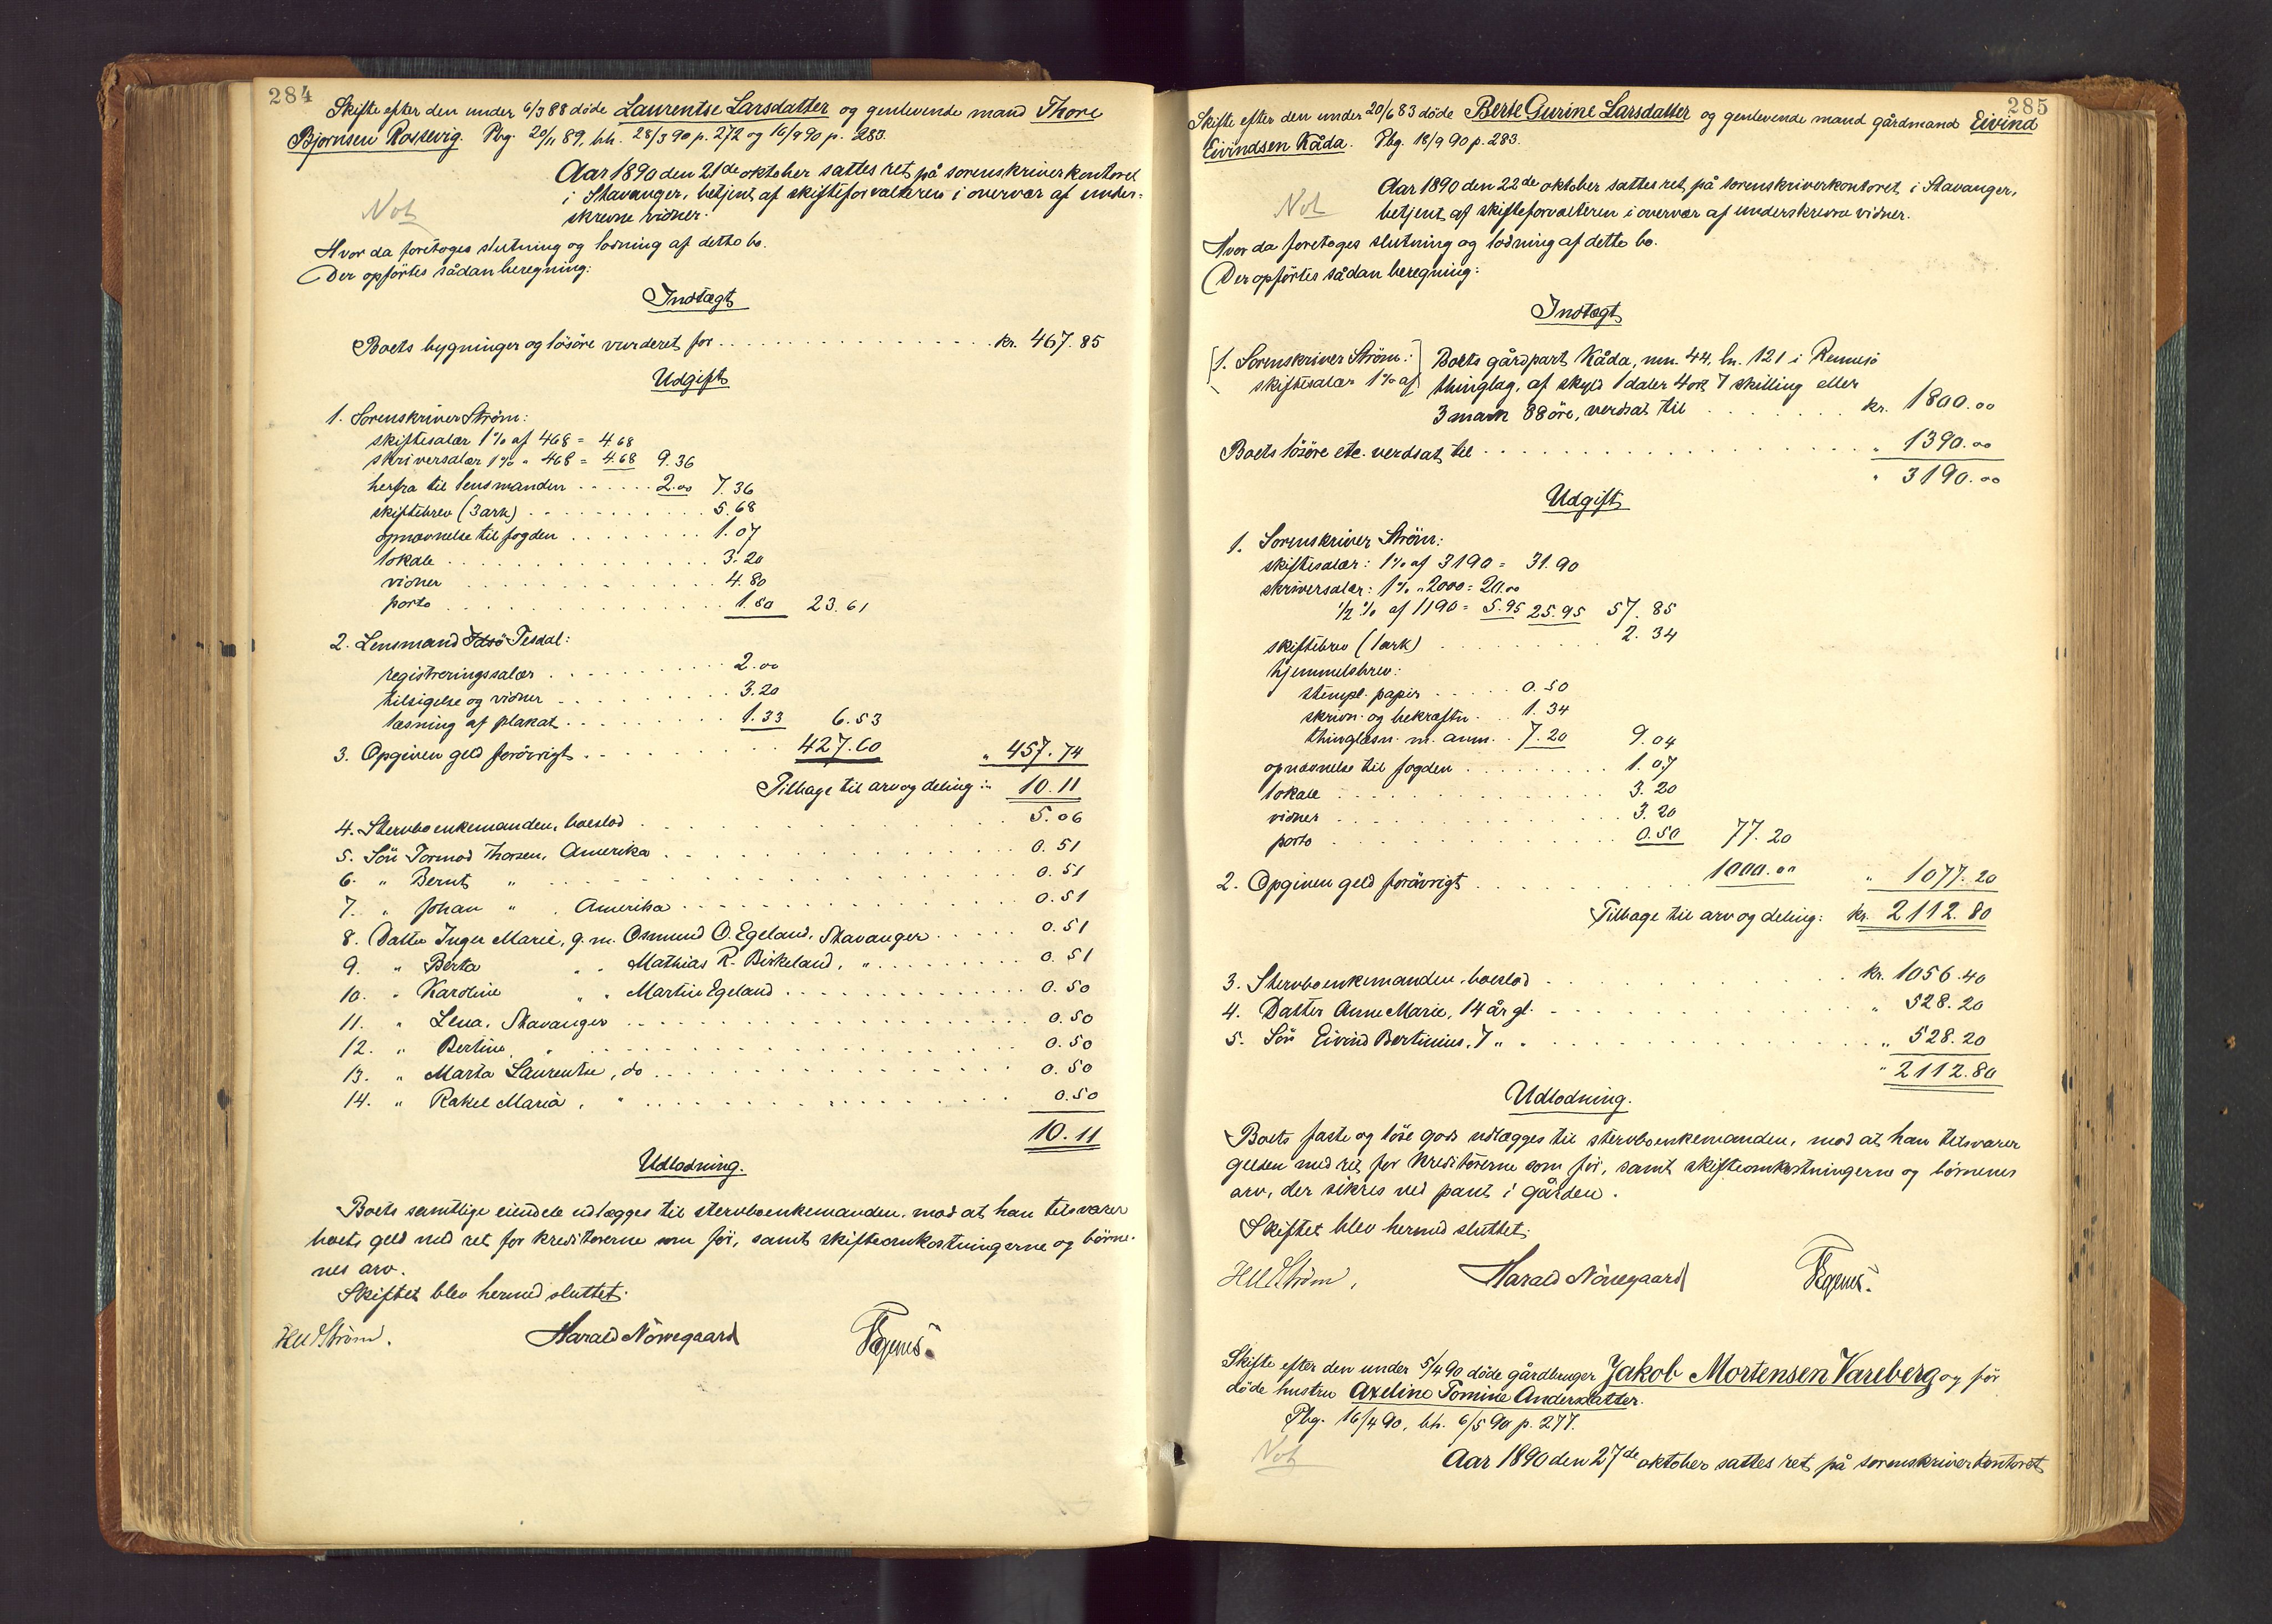 284
Skifte efter den under 6/3 88 døde Laurentse Larsdatter og genlevende mand Thore
Bjørnsen Rossevig. Pbg. 20/11 89, bh. 28/3 90 p. 272 og 16/9 90 p. 283.
Aar 1890 den 21de oktober sattes ret på sorenskriverkontoret
i Stavanger, betjent af skifteforvalteren i overvær af under-
skrevne vidner.
Not
Hvor da foretoges slutning og lodning af dette bo.
Der opførtes sådan beregning:
Indtægt
Boets bygninger og løsøre vurderet for . . . kr. 467.85
Udgift
1. Sorenskriver Strøm:
skiftesalær 1% af 468 = 4.68
skriversalær 1% " 468 = 4.68 9.36
herfra til lensmanden . . . 2.00 7.36
skiftebrev (3 ark) . . . 5.68
opnævnelse til fogden . . . 1.07
lokale . . . 3.20
vidner . . . 4.80
porto . . . 1.50 23.61
2. Lensmand Idsö Tesdal:
registreringssalær . . . 2.00
tilsigelse og vidner . . . 3.20
læsning af plakat . . . 1.33 6.53
3. Opgiven geld forövrigt . . . 427.60 " 457.74
Tilbage til arv og deling: " 10.11
4. Stervboenkemanden, boeslod . . . 5.06
5. Sön Tormod Thorsen, Amerika . . . 0.51
6. " Bernt " . . . 0.51
7. " Johan " , Amerika . . . 0.51
8. Datter Inger Marie, g. m. Osmund O. Egeland, Stavanger . . . 0.51
9. " Berta " " Mathias R. Birkeland, " . . . 0.51
10. " Karoline " " Martin Egeland . . . 0.50
11. " Lena, Stavanger . . . 0.50
12. " Bertine, " . . . 0.50
13. " Marta Laurentse, do . . . 0.50
14. " Rakel Maria, " . . . 0.50
10.11
Udlodning.
Boets samtlige eiendele udlægges til stervboenkemanden, mod at han tilsvarer
boets geld med ret for kreditorerne som för, samt skifteomkostningerne og börne-
nes arv.
Skiftet blev hermed sluttet.
Strøm. Harald Nörregaard
285
Skifte efter den under 20/6 83 døde Berte Gurine Larsdatter og genlevende mand gårdmand Eivind
Eivindsen Kåda. Pbg. 18/9 90 p. 283.
Aar 1890 den 22de oktober sattes ret på sorenskriverkontoret i Stavanger,
Not
betjent af skifteforvalteren i overvær af underskrevne vidner.
Hvor da foretoges slutning og lodning af dette bo.
Der opførtes sådan beregning:
Indtægt
1. Sorenskriver Strøm: Boets gårdpart Kåda, mn. 44, ln. 121 i Rennesö
skiftesalær 1% af thinglag, af skyld 1 daler 4 ort 7 skilling eller
3 mark 88 öre, verdsat til . . . kr. 1800.00
Boets lösöre etc. verdsat til . . . " 1390.00
" 3190.00
Udgift
1. Sorenskriver Ström:
skiftesalær: 1% af 3190 = 31.90
skriversalær: 1% " 2000 = 20.00
1/2 % af 1190 = 5.95 25.95 57.85
skiftebrev (1 ark) . . . 2.34
hjemmelsbrev:
stempl. papir . . . 0.50
skrivn. og bekræftn. . . 1.34
thinglæsn. m. anm. . 7.20 9.04
opnævnelse til fogden . . . 1.07
lokale . . . 3.20
vidner . . . 3.20
porto . . . 0.50 77.20
2. Opgiven geld forövrigt . . . 1000.00 " 1077.20
Tilbage til arv og deling: kr. 2112.80
3. Stervboenkemanden, boeslod . . . kr. 1056.40
4. Datter Anne Marie, 14 år gl. . . . " 528.20
5. Sön Eivind Bertinius, 7 " " . . . " 528.20
" 2112.80
Udlodning.
Boets faste og löse gods udlægges til stervboenkemanden, mod at han tilsvarer
gelden med ret for kreditorerne som för, samt skifteomkostningerne og börnenes
arv, der sikres ved pant i gården.
Skiftet blev hermed sluttet.
Ström. Harald Nörregaard
Skifte efter den under 5/4 90 döde gårdbruger Jakob Mortensen Vareberg og för
döde hustru Axeline Tomine Andersdatter.
Pbg. 16/4 90, bh. 6/5 90 p. 277.
Not
Aar 1890 den 27de oktober sattes ret på sorenskriverkontoret